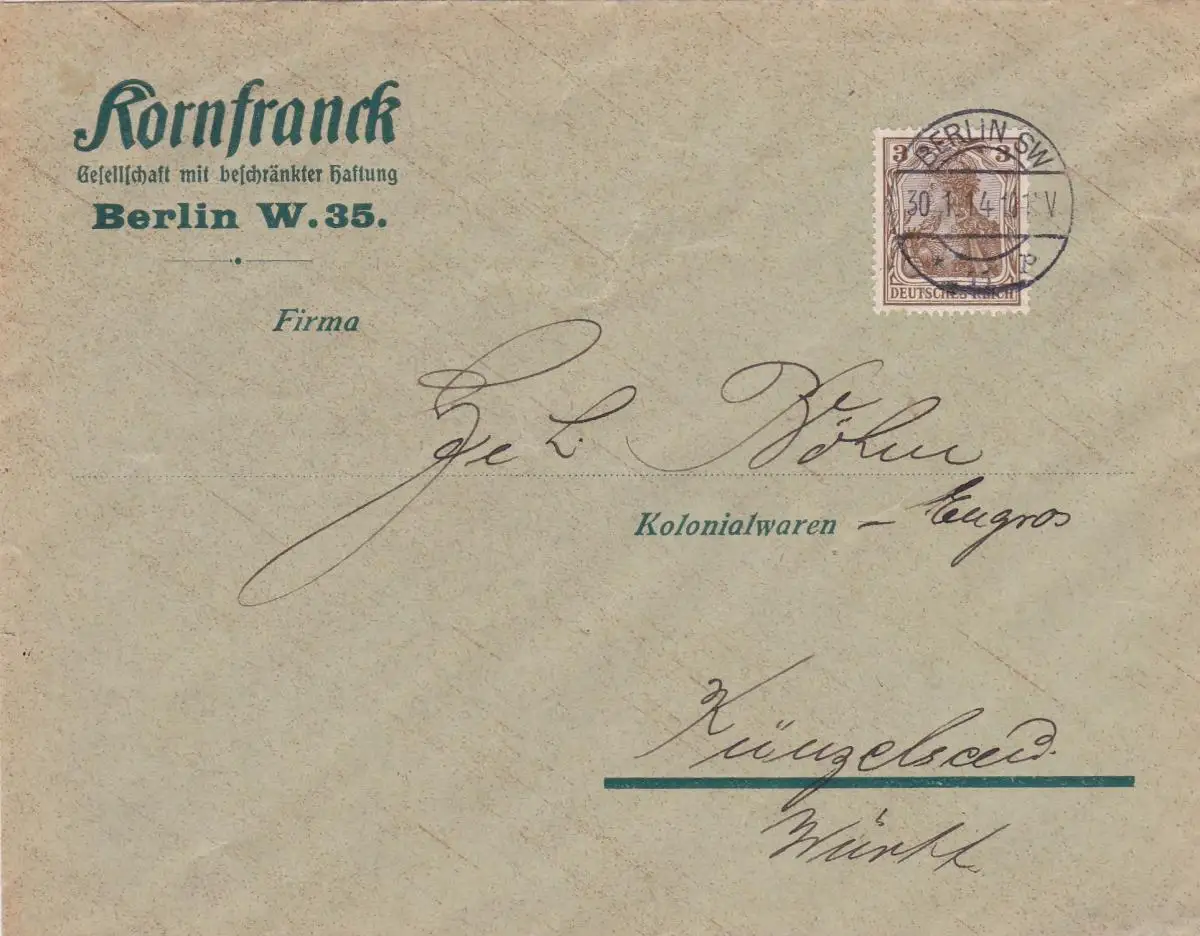 Kornfranck
Geſellſchaft mit beſchränkter Haftung
Berlin W. 35.
3 3
BERLIN SW
30. 1. 14 V
DEUTSCHES REICH
Firma
L. Böhm
Kolonialwaren – Engros
Künzelsau
Württ.